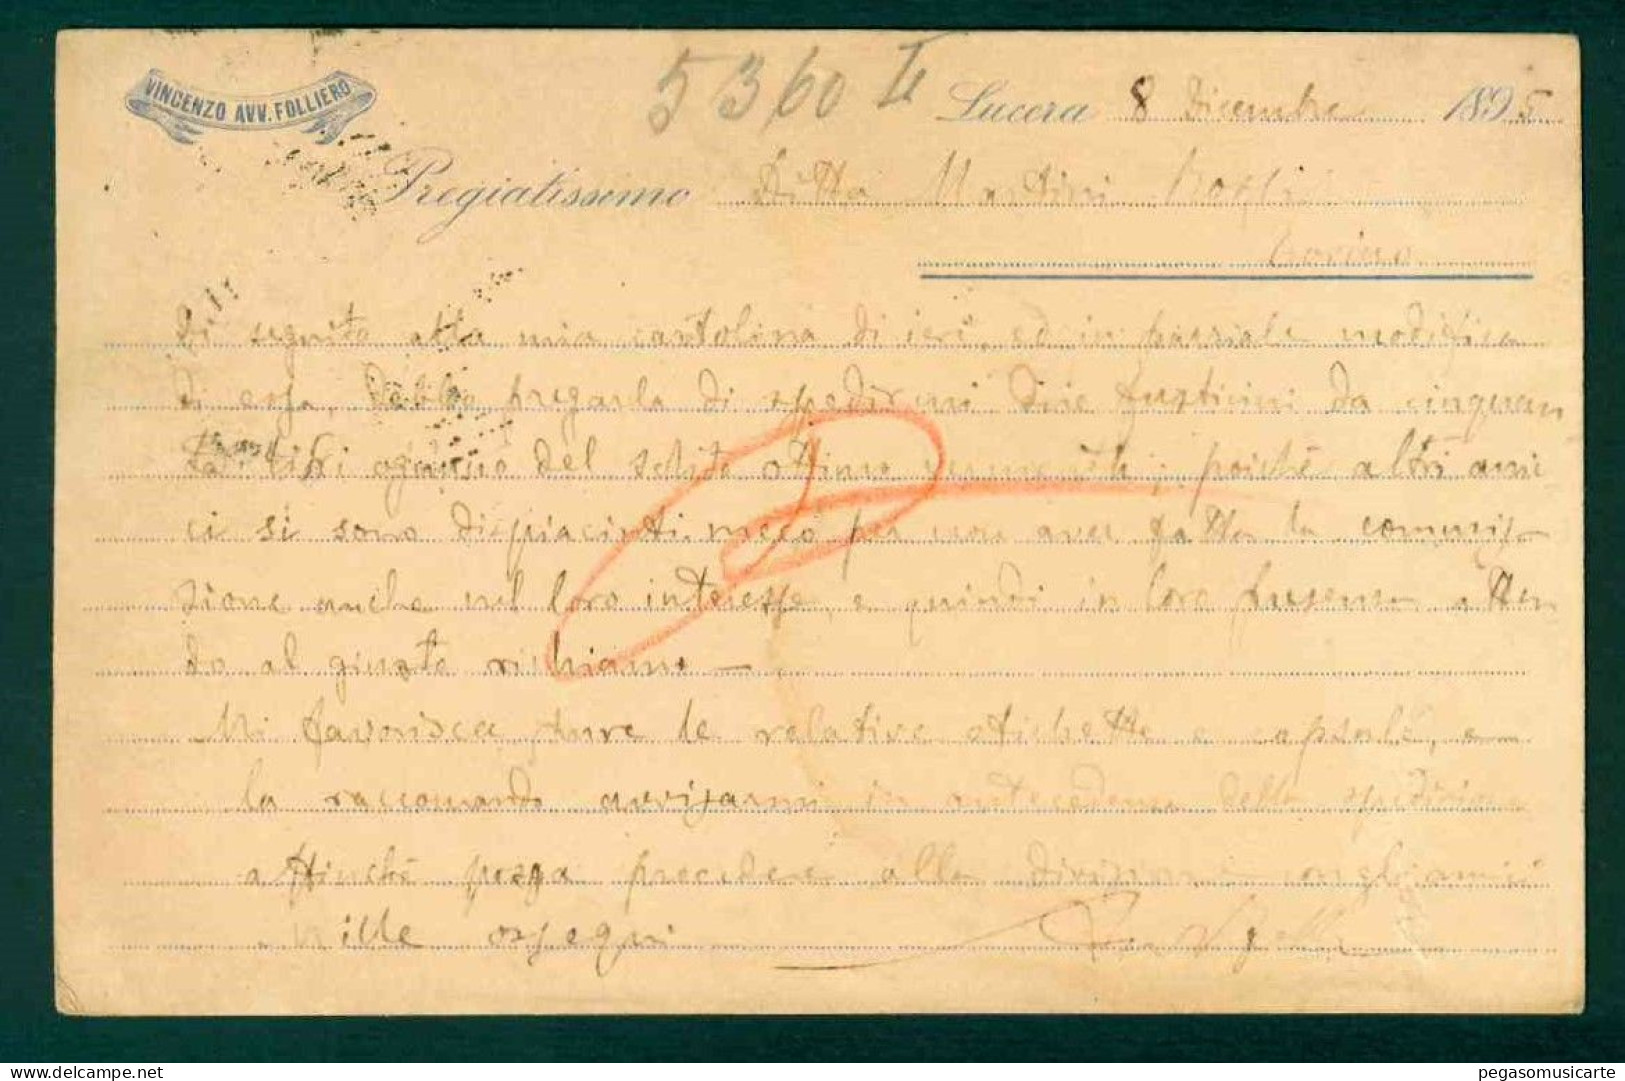 VINCENZO AVV. FOLLIERO
5360 II
Lucera 8 Dicembre 1895
Pregiatissimo Ditta Martini Rossi
Torino
Di seguito alla mia cartolina di ieri, ed in parziale modifica
di essa, debbo pregarla di spedirmi due fusticini da cinquan
ta litri ognuno del solito ottimo vermouth; poichè altri ami
ci si sono dispiaciuti meco per non aver fatta la commis
sione anche nel loro interesse, e quindi in loro presenza atten
do al giusto richiamo —
Mi favorisca pure le relative etichette e capsule, e
la raccomando avvisarmi in antecedenza della spedizione
affinchè possa procedere alla divisione cogli amici
Mille ossequi
pegasomusicarte